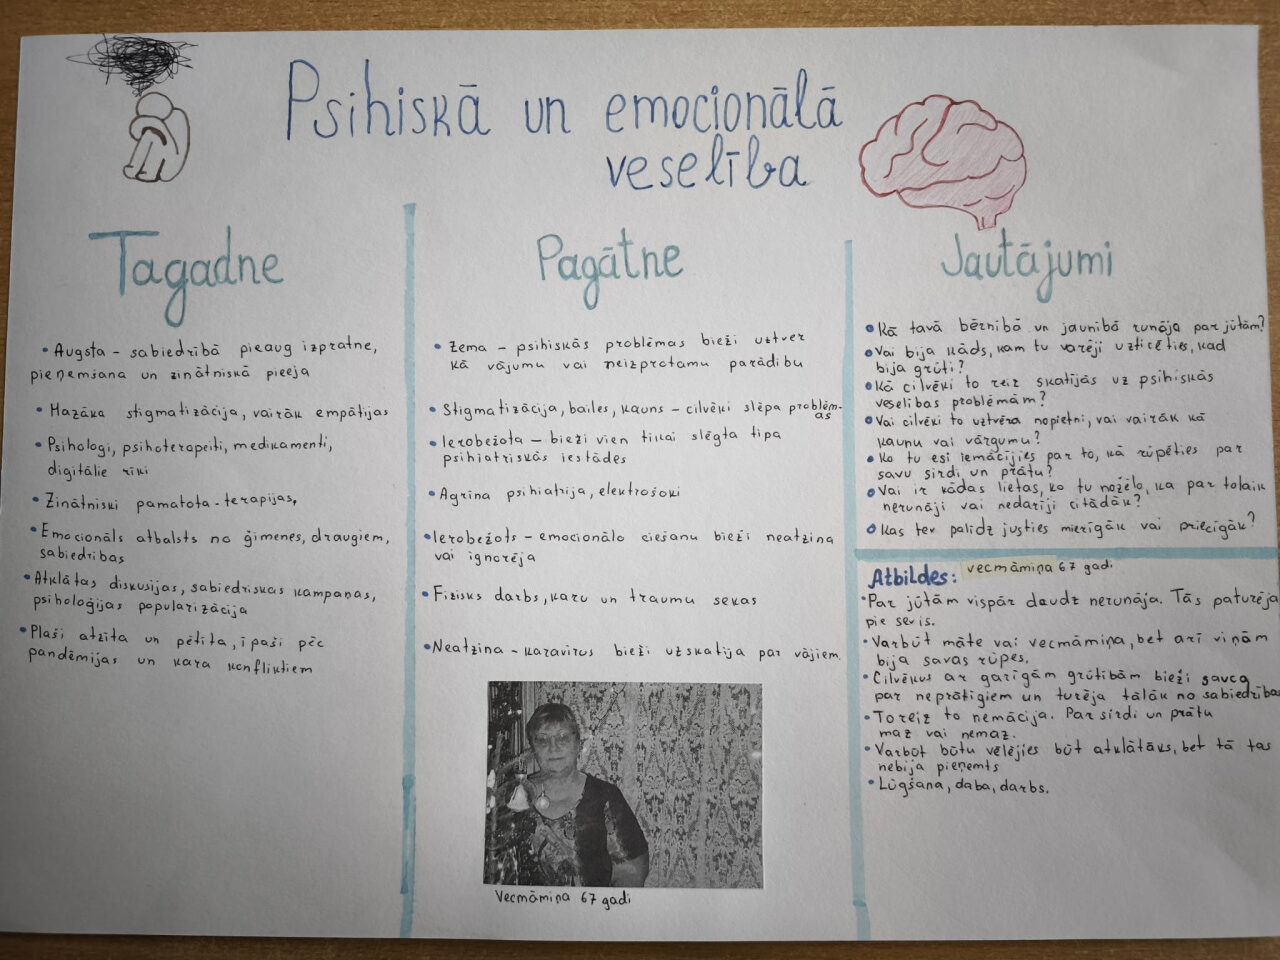 Psihiskā un emocionālā
veselība
Tagadne
• Augsta – sabiedrībā pieaug izpratne,
pieņemšana un zinātniskā pieeja
• Mazāka stigmatizācija, vairāk empātijas
• Psihologi, psihoterapeiti, medikamenti,
digitālie rīki
• Zinātniski pamatota - terapijas,
• Emocionāls atbalsts no ģimenes, draugiem,
sabiedrības
• Atklātas diskusijas, sabiedriskas kampaņas,
psiholoģijas popularizācija
• Plaši atzīta un pētīta, īpaši pēc
pandēmijas un kara konfliktiem
Pagātne
• Zema – psihiskās problēmas bieži uztver
kā vājumu vai neizprotamu parādību
• Stigmatizācija, bailes, kauns – cilvēki slēpa problēm-
as
• Ierobežota – bieži vien tikai slēgta tipa
psihiatriskās iestādes
• Agrīna psihiatrija, elektrošoki
• Ierobežots – emocionālo ciešanu bieži neatzina
vai ignorēja
• Fizisks darbs, karu un traumu sekas
• Neatzina – karavīrus bieži uzskatīja par vājiem.
Vecmāmiņa 67 gadi
Jautājumi
• Kā tavā bērnībā un jaunībā runāja par jūtām?
• Vai bija kāds, kam tu varēji uzticēties, kad
bija grūti?
• Kā cilvēki to reiz skatījās uz psihiskās
veselības problēmām?
• Vai cilvēki to uztvēra nopietni, vai vairāk kā
kaunu vai vārgumu?
• Ko tu esi iemācījies par to, kā rūpēties par
savu sirdi un prātu?
• Vai ir kādas lietas, ko tu nožēlo, ka par tolaik
nerunāji vai nedarīji citādāk?
• Kas tev palīdz justies mierīgāk vai priecīgāk?
Atbildes: vecmāmiņa 67 gadi
• Par jūtām vispār daudz nerunāja. Tās paturēja
pie sevis.
• Varbūt māte vai vecmāmiņa, bet arī viņām
bija savas rūpes.
• Cilvēkus ar garīgām grūtībām bieži sauca
par neprātīgiem un turēja tālāk no sabiedrības
• Toreiz to nemācīja. Par sirdi un prātu
maz vai nemaz.
• Varbūt būtu vēlējies būt atklātāks, bet tā tas
nebija pieņemts
• Lūgšana, daba, darbs.